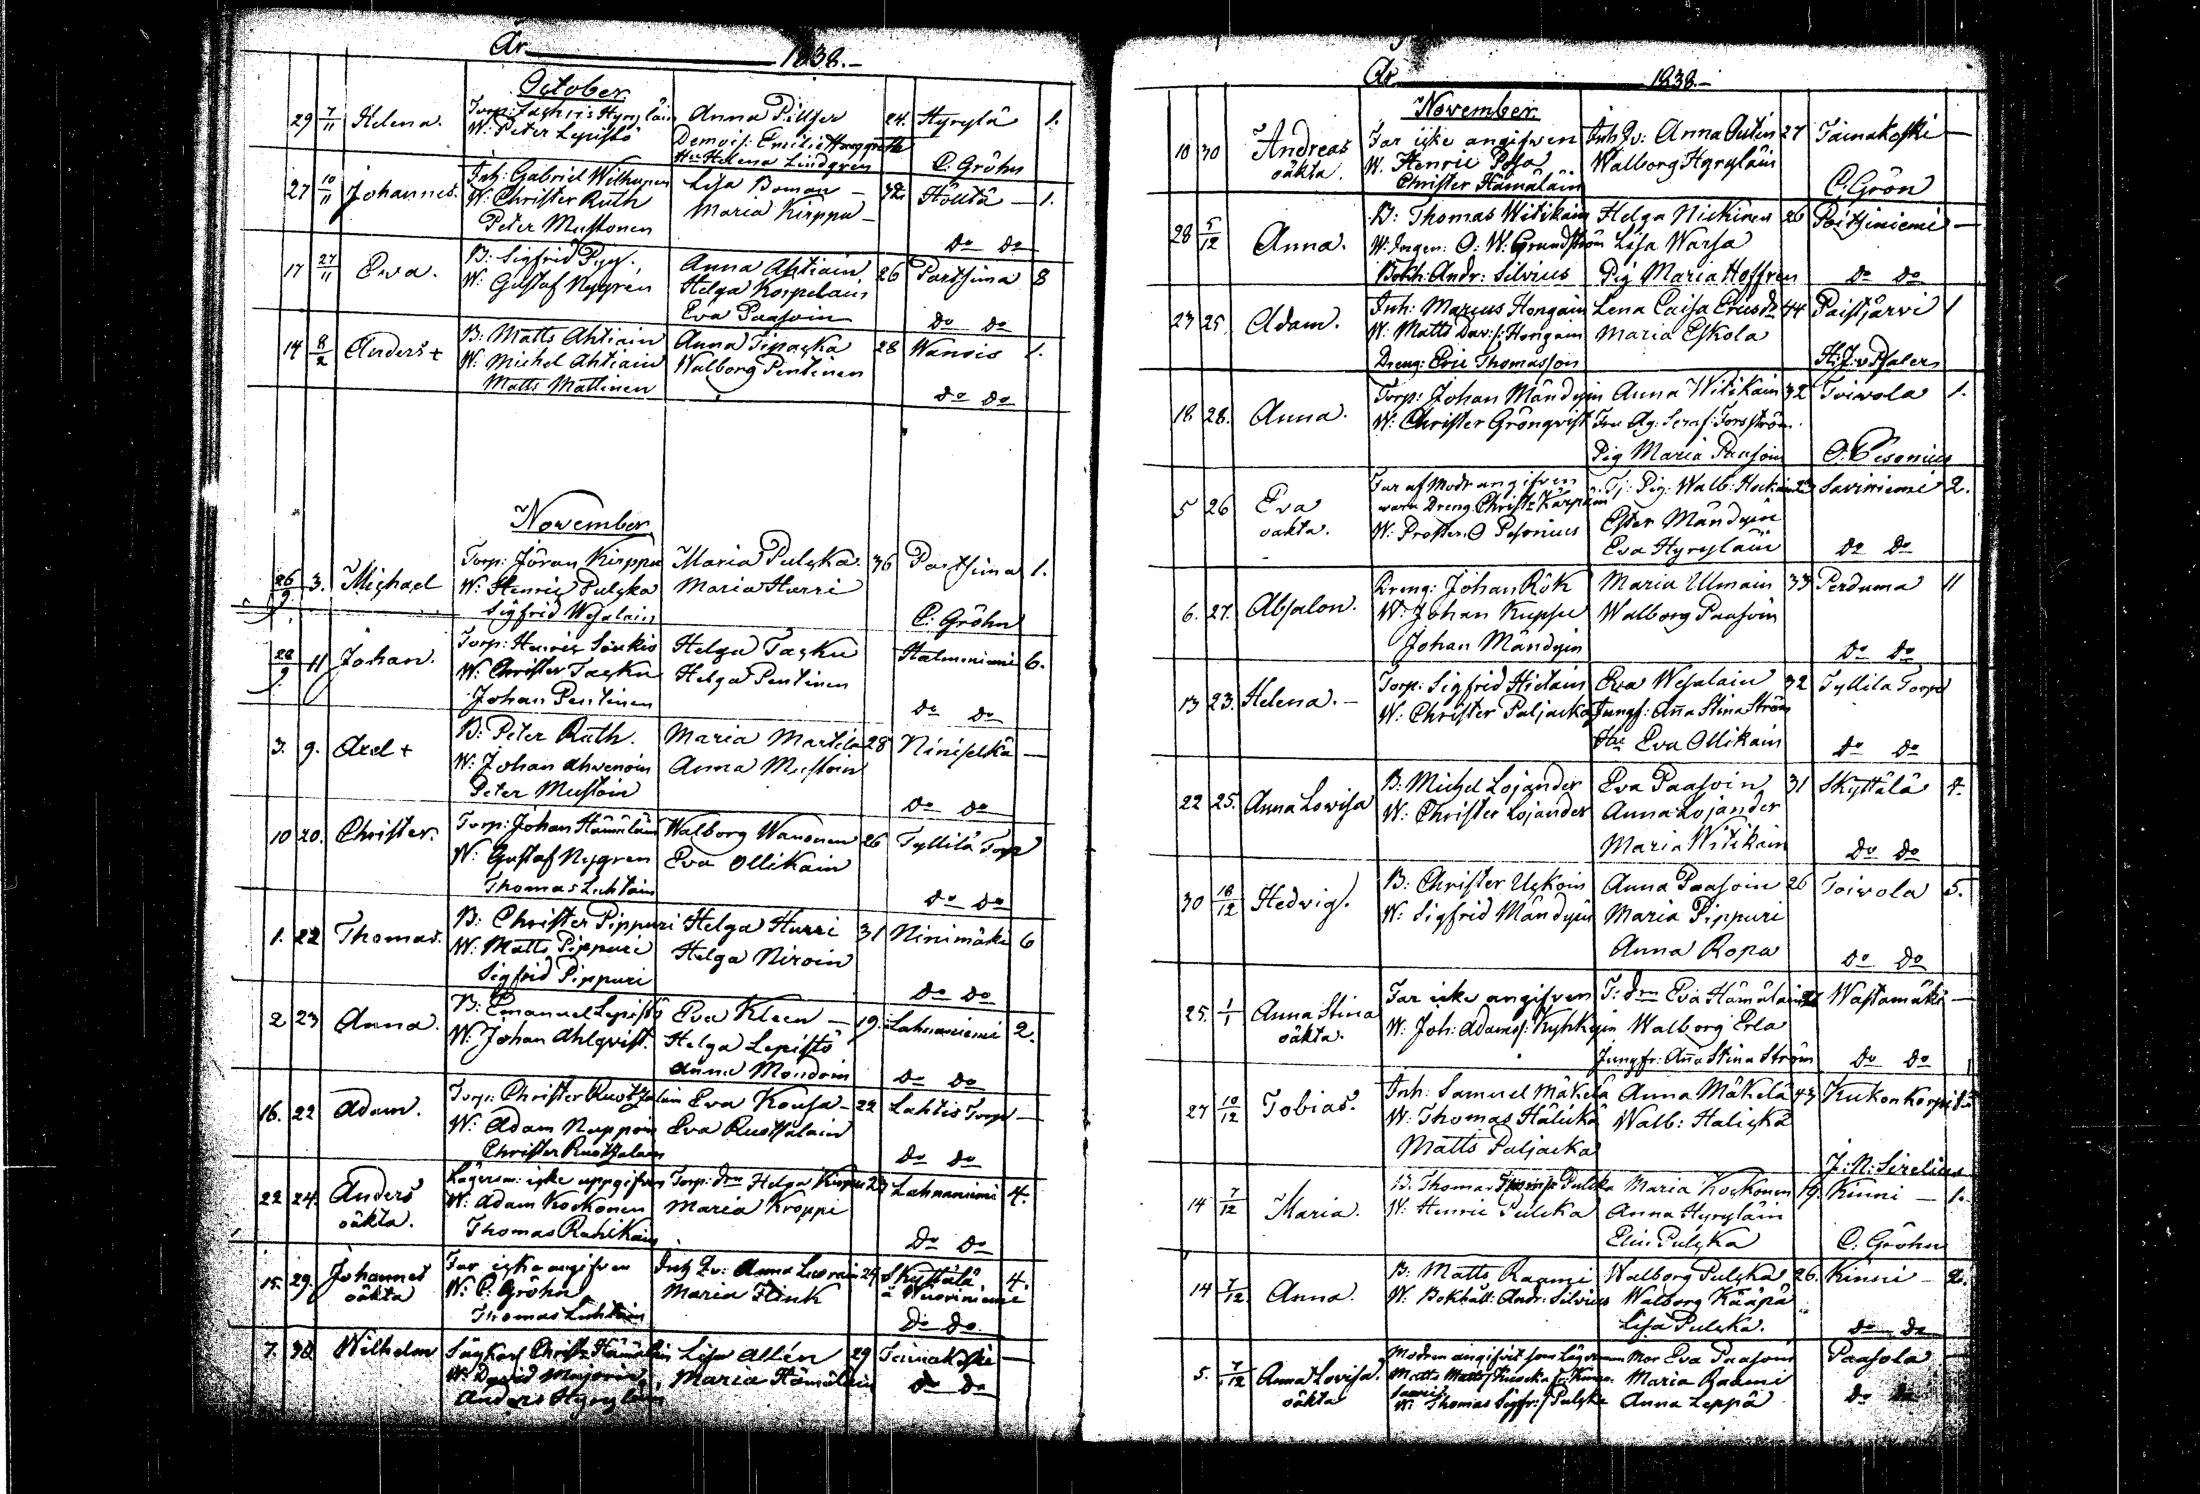 År 1838.-
October
29 7/11 Helena. Torp: Zachris Hyryläin Anna Pillser 24. Hyrylä 1.
W. Peter Lepistö Demois: Emilie
Hu Helena Lindgren C. Gröhn
27 10/11 Johannes. Inh: Gabriel Wilhunen Lisa Boman - 32. Höltä - 1.
W: Christer Ruth Maria Kirppu -
Peter Mustonen Do Do
17 27/11 Eva. B: Sigfrid Pyy. Anna Ahtiain 26 Partsima 8
W: Gustaf Nygren Helga Korpelain
Eva Paasoin Do Do
14 8/2 Anders + B: Matts Ahtiain Anna 28 Wanois 1.
W: Michel Ahtiain Walborg Pentinen
Matts Mattinen Do Do
November
26/9 3. Michael Torp: Jöran Kirppu Maria Pulcka. 36 Partsima 1.
W: Henric Pulcka Maria Hurri
Sigfrid Wesalain C. Gröhn
28/9 11 Johan. Torp: Henric Helga Tasku 6.
W. Christer Tasku Helga Pentinen
Johan Pentinen Do Do
3. 9. Axel + B: Peter Ruth. Maria Martila 28 Niniselkä -
W: Johan Ahvenoin Anna Mustoin
Peter Mustoin Do Do
10 20. Christer. Torp: Johan Hämäläin Walborg Wanonen 26 Tyllilä Torp
W: Gustaf Nygren Eva Ollikain
Thomas Luhtain Do Do
1. 22 Thomas. B: Christer Pippuri Helga Hurri 31 Ninimäki 6
W: Matts Pippuri Helga Niroin
Sigfrid Pippuri Do Do
2 23 Anna. B: Emanuel Lepistö Eva Kleen - 19. Lahnaniemi 2.
W. Johan Ahlqvist. Helga Lepistö
Anna Mondoin Do Do
16. 22 Adam. Torp: Christer Ruotzalain Eva Kousa - 22 Lahtis Torp -
W: Adam Nuppon Eva Ruotzalain
Christer Ruotzalain Do Do
22 24. Anders Lägersm: icke uppgifven Torp: Helga 23 Lahnaniemi 4.
oäkta. W: Adam Kockonen Maria Kroppi
Thomas Do Do
15. 29. Johannes Far icke angifven Anna 24 Skyttälä 4.
oäkta W: C. Gröhn Maria Flink
Thomas Luhtain Do Do
7. 30 Wilhelm Christ: Hämäläin Lisa Allén 29 -
W: David Majorin, Maria Hämäläin Do Do
Anders Hyryläin
År 1838.-
November.
10 30 Andreas Far icke angifven Anna 27 -
oäkta. W. Henric Walborg Hyryläin
Christer Hämäläin C. Grön
28 5/12 Anna. B: Thomas Witikain Helga Nickinen 26 Poitsiniemi -
W: Ingen: O: W: Grundström Lisa Warsa
Bokh: Andr: Silvius Pig Maria Hoffren Do Do
23 25 Adam. Inh: Marcus Hongain Lena Caisa 44 Paistjärvi 1
W: Matts Dav:s: Hongain Maria Eskola
Dreng: Eric Thomasson
18 28. Anna. Torp: Johan Mändyin Anna Witikain 32 Toivola 1.
W: Christer Grönqvist Fru Ag: Seraf: Forsström
Pig Maria Paasoin O. Pesonius
5 26 Eva Far af Modr angifven Tj: Pig: Walb: 23 Saviniemi 2.
oäkta. vara Dreng Christ: Kärpäin Ester Mändyin
W: Proster. O Pesonius Eva Hyryläin Do Do
6. 27. Absalon. Dreng: Johan Rök Maria Ulmain 33 Perduma 11
W: Johan Kuppu Walborg Paasoin
Johan Mändyin Do Do
13 23. Helena. - Torp: Sigfrid Hietain Eva Wesalain 32 Tyllilä Torp
W: Christer Paljacka Jungf: Anna Stina Ström
Hu Eva Ollikain Do Do
22 25. Anna Lowisa B: Michel Lojander Eva Paasoin 31 Skyttälä 4.
W: Christer Lojander Anna Lojander
Maria Witikain Do Do
30 16/12 Hedvig. B: Christer Uskoin Anna Paasoin 26 Toivola 5.
W: Sigfrid Mändyin Maria Pippuri
Anna Ropa Do Do
25. 1/1 Anna Stina Far icke angifven T: Eva Hämäläin Wastamäki -
oäkta. W: Joh: Adams: Kyhkyin Walborg Erla
Jungfr: Anna Stina Ström Do Do
27 10/12 Tobias. Inh: Samuel Mäkelä Anna Mäkelä 43
W: Thomas Halickä Walb: Halickä
Matts Paljacka J: N: Sirelius
14 7/12 Maria. B: Thomas Pulcka Maria Kockonen 19. Kinni - 1.
W: Henric Pulcka Anna Hyryläin
Elin Pulcka C: Gröhn
14 7/12 Anna. B: Matts Raami Walborg Pulcka 26. Kinni - 2.
W: Bokhåll: Andr: Silvius Walborg Kääpä
Lisa Pulcka. Do Do
5. 7/12 Anna Lovisa. Modren angifvit som Lägersman Mor Eva Paasoin Paasola -
oäkta Matts Maria Raami Do Do
W: Thomas Sigfr: Pulcka Anna Leppä